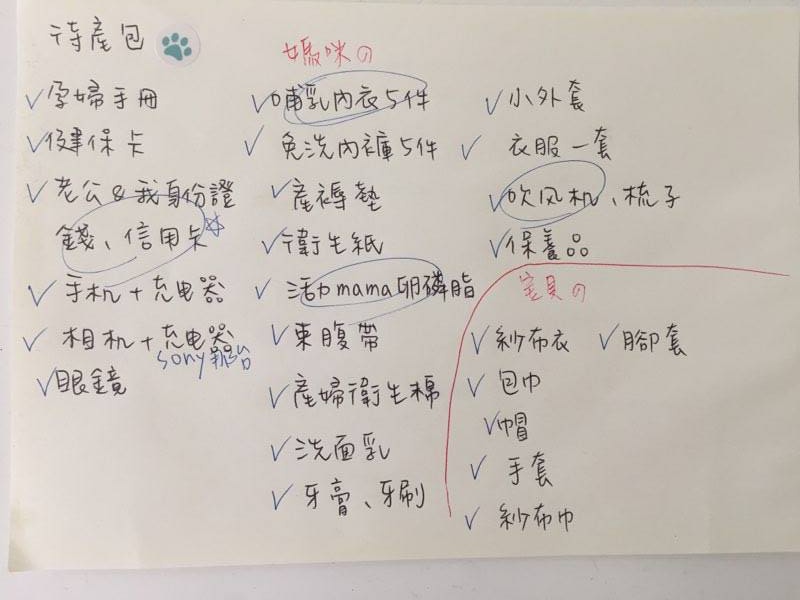 待產包
✓孕婦手冊
✓健保卡
✓老公&我身份證
錢、信用卡☆
✓手机+充电器
✓相机+充电器
sony
✓眼鏡
媽咪の
✓哺乳內衣5件
✓免洗內褲5件
✓產褥墊
✓衛生紙
✓活力mama卵磷脂
✓束腹帶
✓產婦衛生棉
✓洗面乳
✓牙膏、牙刷
✓小外套
✓衣服一套
✓吹风机、梳子
✓保養品
宝貝の
✓紗布衣 ✓腳套
✓包巾
✓帽
✓手套
✓紗布巾